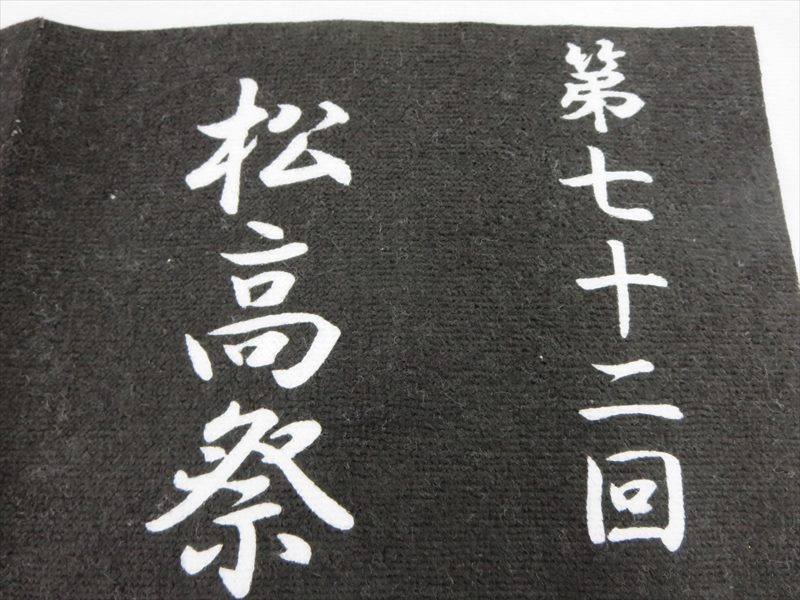 第七十二回
松高祭